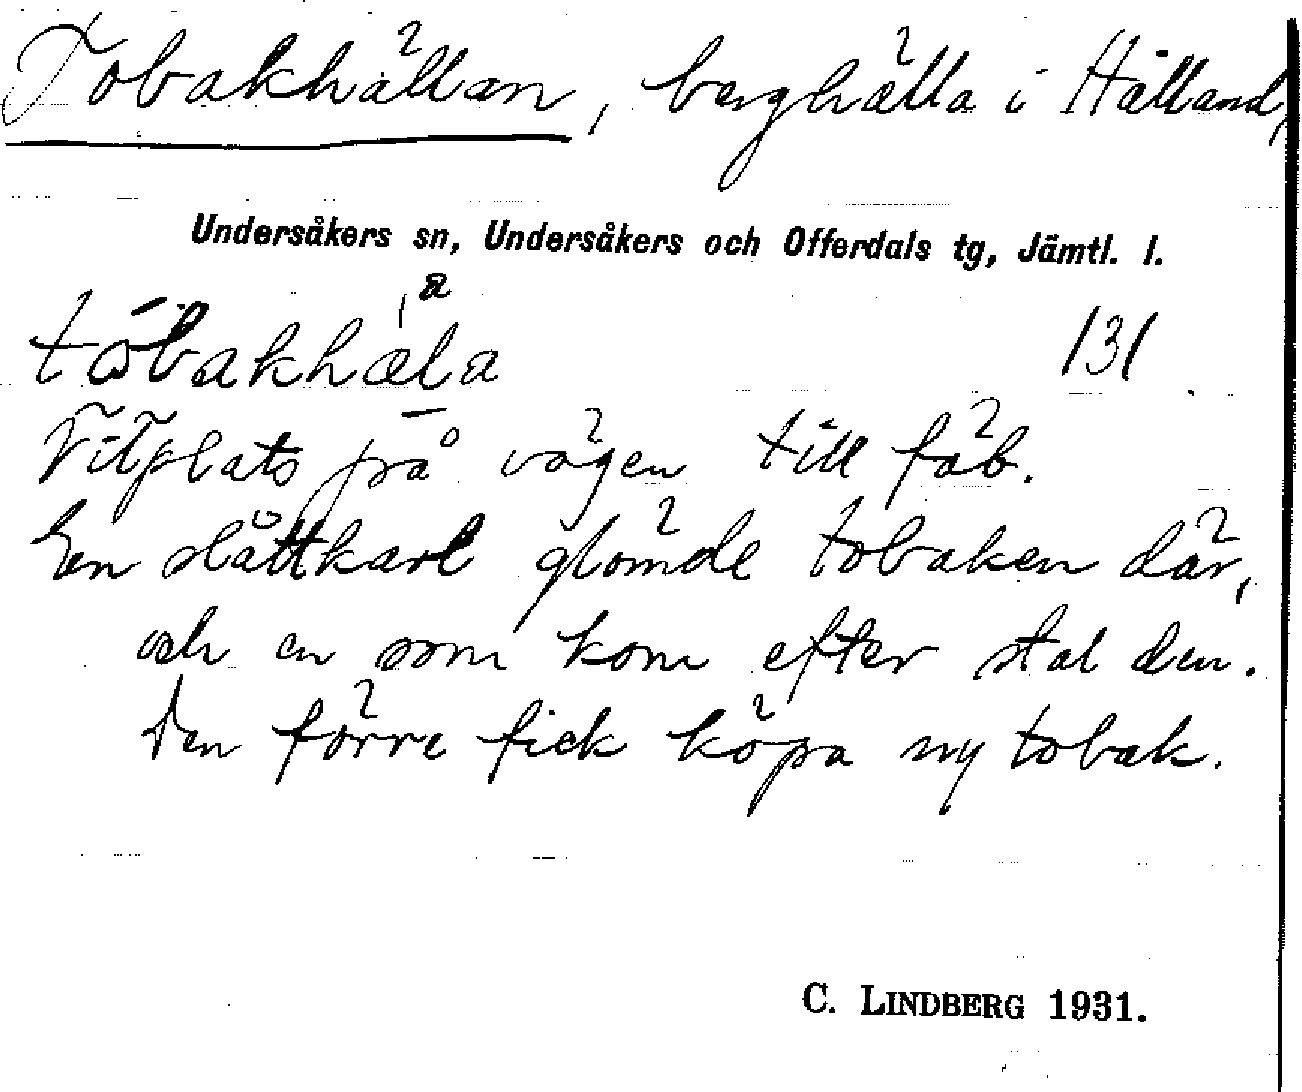 Tobakhällan, berghälla i Hålland,
Undersåkers sn, Undersåkers och Offerdals tg, Jämtl. l.
131
Vilplats på vägen till fäb.
En slåttkarl glömde tobaken där,
och en som kom efter stal den.
Den förre fick köpa ny tobak.
C. LINDBERG 1931.